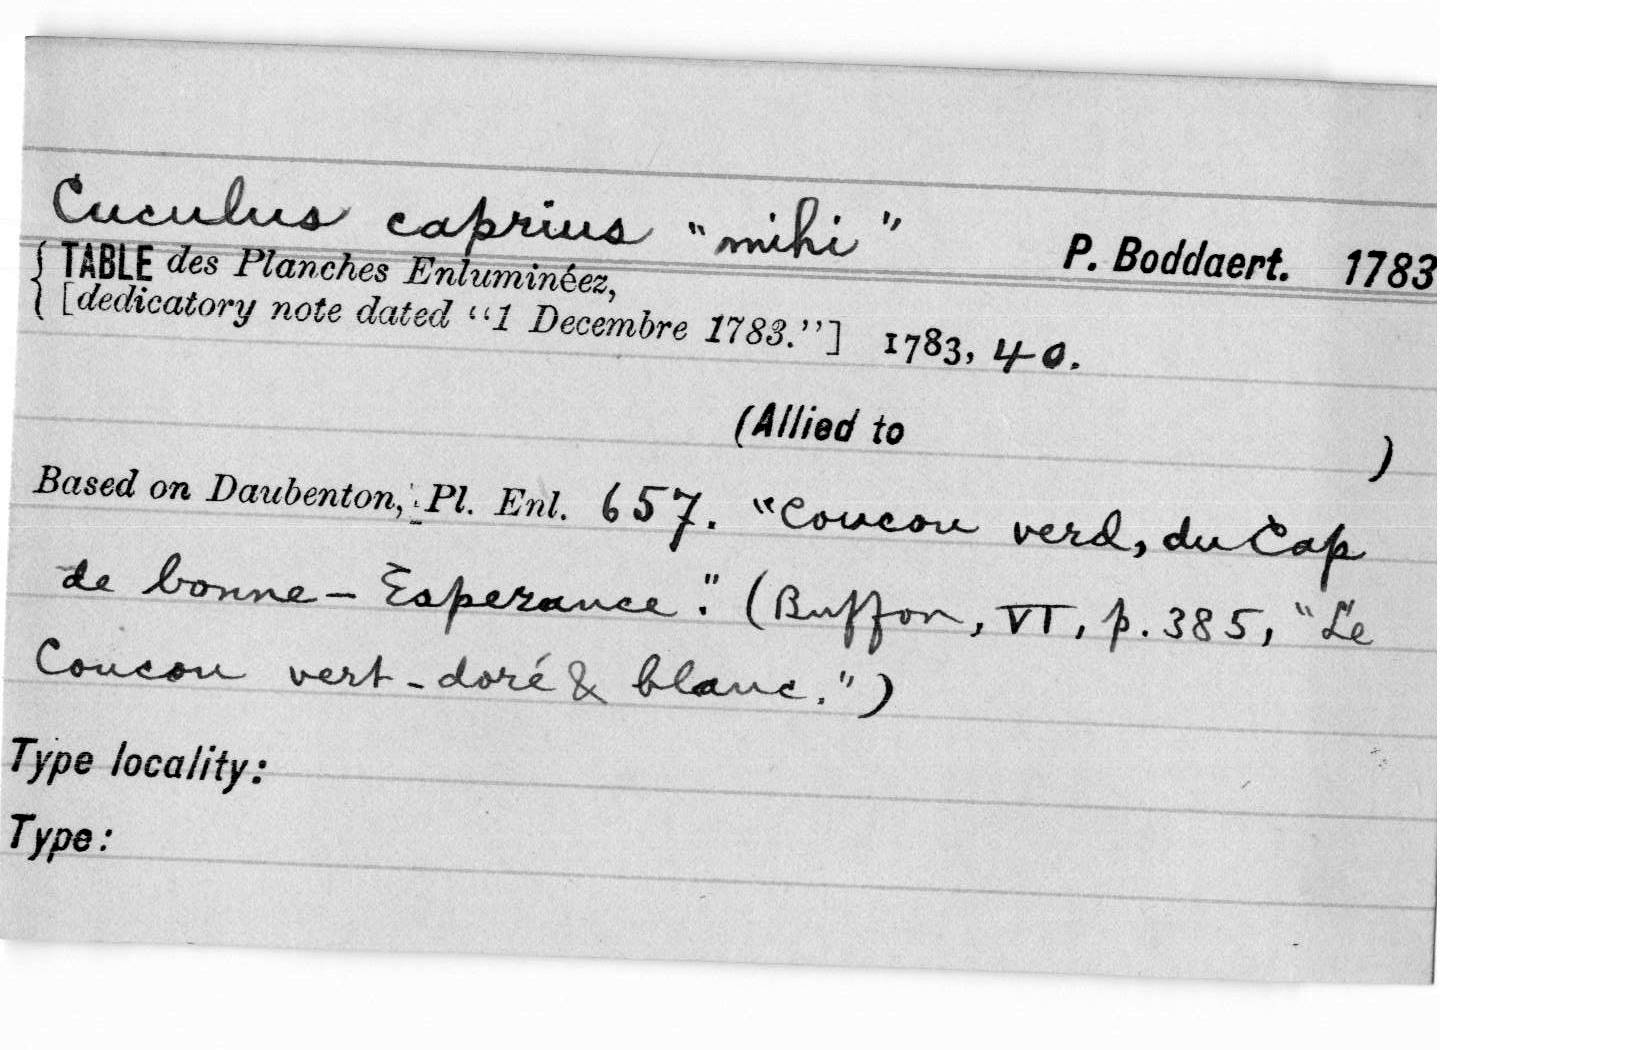 Cuculus caprius "mihi" P. Boddaert. 1783
TABLE des Planches Enluminéez,
[dedicatory note dated "1 Decembre 1783."] 1783, 40.
(Allied to )
Based on Daubenton, Pl. Enl. 657. "Coucou verd, du Cap
de bonne-Esperance". (Buffon, VI, p. 385, "Le
Coucou vert-doré & blanc.")
Type locality:
Type: